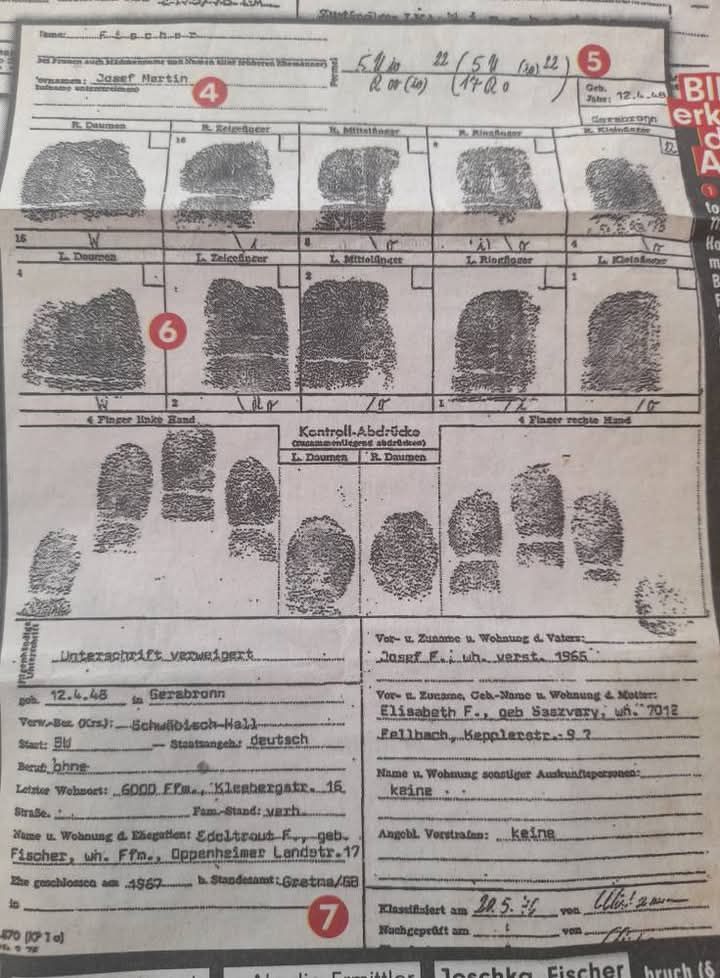 Name: Fischer
(bei Frauen auch Mädchenname und Namen aller früheren Ehemänner)
Vornamen: Josef Martin
(Rufname unterstreichen)
4
Formel
5
Geb.
Jahr: 12.4.48
Gerabronn
R. Daumen R. Zeigefinger R. Mittelfinger R. Ringfinger R. Kleinfinger
16 W
16
8
8
4
L. Daumen L. Zeigefinger L. Mittelfinger L. Ringfinger L. Kleinfinger
4 2 1
6
W 2 1
4 Finger linke Hand
Kontroll-Abdrücke
(zusammenliegend abdrücken)
L. Daumen R. Daumen
4 Finger rechte Hand
Eigenhändige
Unterschrift
Unterschrift verweigert
geb. 12.4.48 in Gerabronn
Verw.-Bez. (Krs.): Schwäbisch-Hall
Staat: BW — Staatsangeh.: deutsch
Beruf: ohne
Letzter Wohnort: 6000 Ffm., Kleebergstr. 16
Straße: Fam.-Stand: verh.
Name u. Wohnung d. Ehegatten: Edeltraut F., geb.
Fischer, wh. Ffm., Oppenheimer Landstr.17
Ehe geschlossen am 1967 b. Standesamt: Gretna/GB
in
7
Vor- u. Zuname u. Wohnung d. Vaters:
Josef F., wh. verst. 1966
Vor- u. Zuname, Geb.-Name u. Wohnung d. Mutter:
Elisabeth F., geb Saszvary, wh. 7012
Fellbach, Kepplerstr. 9 ?
Name u. Wohnung sonstiger Auskunftspersonen:
keine
Angebl. Vorstrafen: keine
Klassifiziert am 20.5.76 von
Nachgeprüft am von
Joschka Fischer